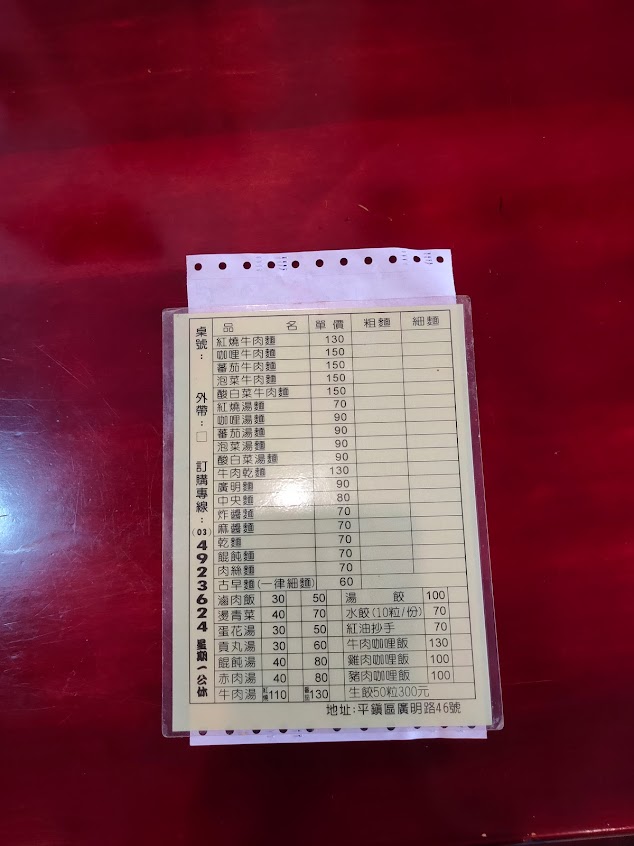 桌號：
外帶：□
訂購專線：
(03)
4923624
星期一公休
品 名 單價 粗麵 細麵
紅燒牛肉麵 130
咖哩牛肉麵 150
蕃茄牛肉麵 150
泡菜牛肉麵 150
酸白菜牛肉麵 150
紅燒湯麵 70
咖哩湯麵 90
蕃茄湯麵 90
泡菜湯麵 90
酸白菜湯麵 90
牛肉乾麵 130
廣明麵 90
中央麵 80
炸醬麵 70
麻醬麵 70
乾麵 70
餛飩麵 70
肉絲麵 70
古早麵(一律細麵) 60
滷肉飯 30 50 湯 餃 100
燙青菜 40 70 水餃(10粒/份) 70
蛋花湯 30 50 紅油抄手 70
貢丸湯 30 60 牛肉咖哩飯 130
餛飩湯 40 80 雞肉咖哩飯 100
赤肉湯 40 80 豬肉咖哩飯 100
牛肉湯 紅燒 110 130 生餃50粒300元
地址:平鎮區廣明路46號